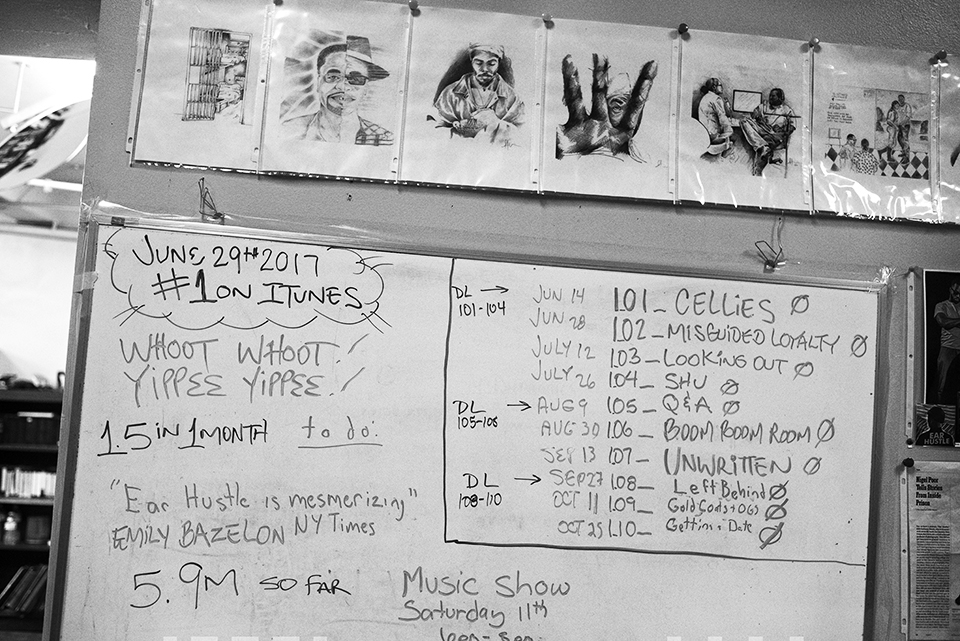 JUNE 29TH 2017
#1 ON ITUNES
WHOOT WHOOT!
YIPPEE YIPPEE!
1.5 in 1 MONTH
to do:
"Ear Hustle is mesmerizing"
EMILY BAZELON NY Times
5.9M SO FAR
DL →
101-104
JUN 14 101_ CELLIES Ø
JUN 28 102_ MISGUIDED LOYALTY Ø
JULY 12 103_ LOOKING OUT Ø
JULY 26 104_ SHU Ø
DL →
105-108
AUG 9 105_ Q&A Ø
AUG 30 106_ BOOM BOOM ROOM Ø
SEP 13 107_ UNWRITTEN Ø
DL →
108-110
SEP 27 108_ Left Behind Ø
OCT 11 109_ Gold Coats + OGs Ø
OCT 25 110_ Getting a Date Ø
Music Show
Saturday 11th
EAR
HUSTLE
Nigel Poor
Tells Stories
From Inside
Prison